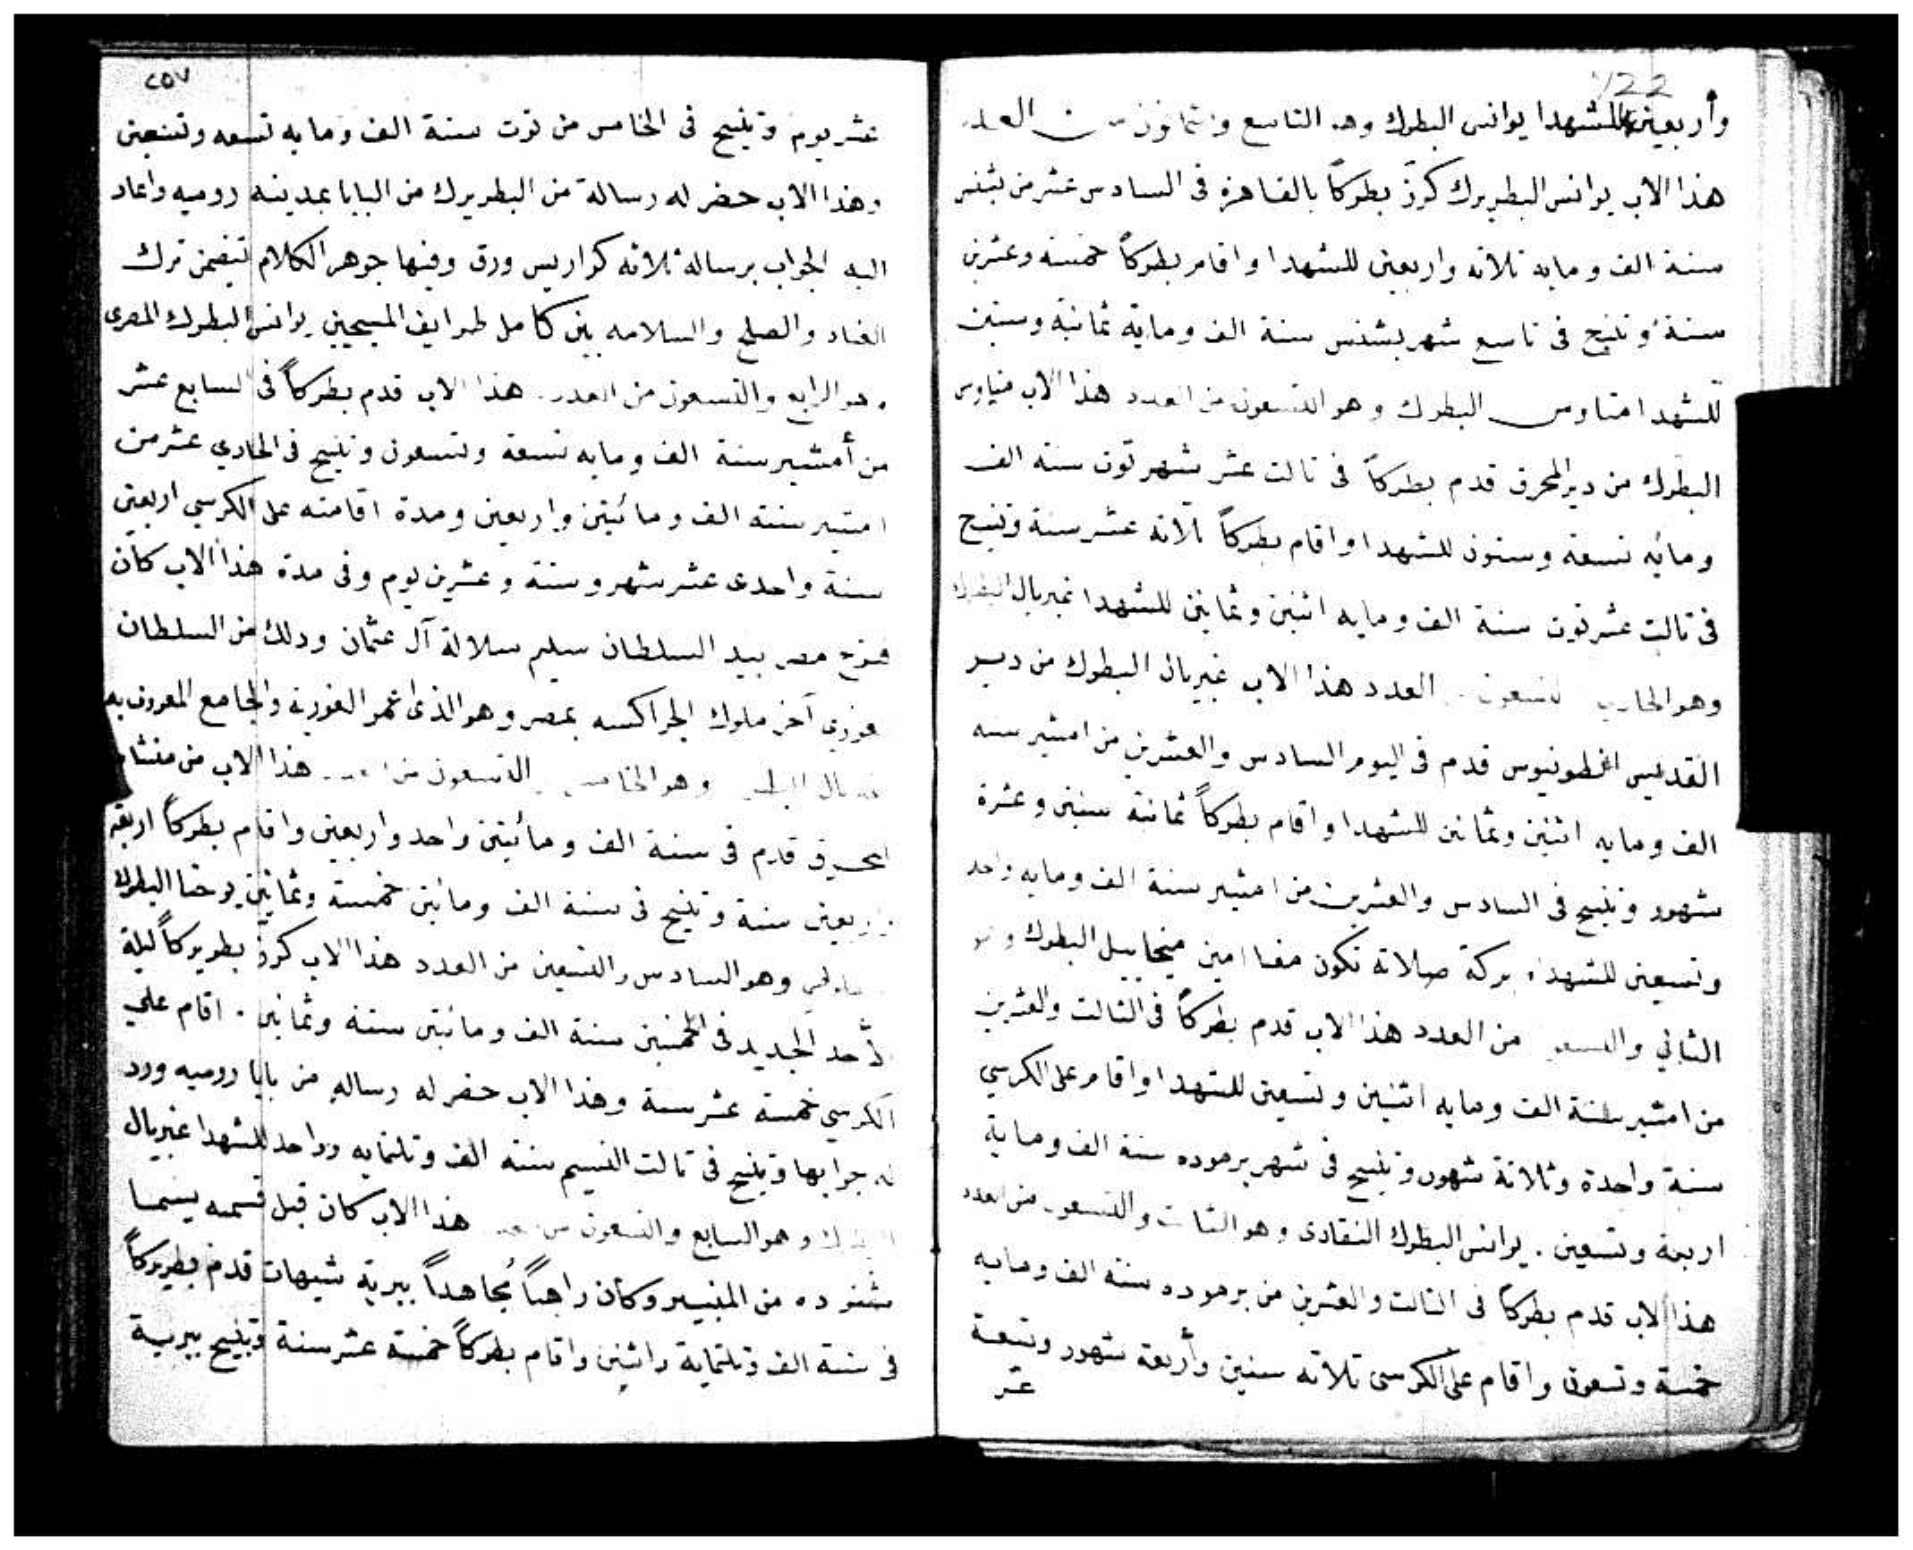 122
وأربعين للشهدا يوانس البطرك وهو التاسع وثمانون من العدد
هذا الاب يوانس البطريرك كرز بطركاً بالقاهرة فى السادس عشر من بشنس
سنة الف ومايه ثلاثه واربعين للشهدا واقام بطركاً خمسه وعشرين
سنة وتنيح فى تاسع شهر بشنس سنة الف ومايه ثمانية وستين
للشهدا متاوس البطرك وهو التسعون من العدد هذا الاب متياوس
البطرك من دير المحرق قدم بطركاً فى تالت عشر شهر توت سنة الف
ومايه تسعه وستون للشهدا واقام بطركاً ثلاثه عشر سنة وتنيح
فى تالت عشر توت سنة الف ومايه اثنين وثمانين للشهدا غبريال البطرك
وهو الحادي التسعون العدد هذا الاب غبريال البطرك من دير
القديس انطونيوس قدم فى اليوم السادس والعشرين من امشير سنه
الف ومايه اثنين وثمانين للشهدا واقام بطركاً ثمانية سنين وعشرة
شهور وتنيح فى السادس والعشرين من امشير سنة الف ومايه واحد
وتسعين للشهدا بركة صلاته تكون معنا امين ميخاييل البطرك وهو
الثاني والتسعون من العدد هذا الاب قدم بطركاً فى الثالت والعشرين
من امشير سنة الف ومايه اثنين وتسعين للشهدا واقام على الكرسي
سنة واحدة وثلاثة شهور وتنيح فى شهر برموده سنة الف وماية
اربعة وتسعين . يوانس البطرك النقادى وهو الثالث والتسعون من العدد
هذا الاب قدم بطركاً فى الثالت والعشرين من برموده سنة الف ومايه
خمسة وتسعون واقام على الكرسى ثلاثه سنين وأربعة شهور وتسعة
عشر
٢٥٧
عشر يوم وتنيح فى الخامس من توت سنة الف ومايه تسعه وتسعين
وهذا الاب حضر له رسالة من البطريرك من البابا بمدينه روميه واعاد
اليه الجواب برسالة ثلاثه كواريس ورق وفيها جوهر الكلام تيضمن ترك
العناد والصلح والسلامه بين كامل طوايف المسيحين يوانس البطرك المصرى
وهو الرابع والتسعون من العدد هذا الاب قدم بطركاً فى السابع عشر
من أمشير سنة الف ومايه تسعة وتسعون وتنيح فى الحادي عشر من
امشير سنة الف ومائيتين واربعين ومدة اقامته على الكرسي اربعين
سنة واحدى عشر شهر وستة وعشرين يوم وفى مدة هذا الاب كان
فتوح مصر بيد السلطان سليم سلالة آل عثمان ودلك من السلطان
غوري آخر ملوك الجراكسه بمصر وهو الذى عمر الغورية والجامع المعروف به
غبريال البطرك وهو الخامس التسعون من العدد هذا الاب من منشاه
المحرق قدم فى سنة الف ومائيتين واحد واربعين واقام بطركاً اربعة
واربعين سنة وتنيح فى سنة الف ومائتين خمسة وثمانين يوحنا البطرك
وهو السادس والتسعين من العدد هذا الاب كرز بطويركاً ليلة
لأحد الجديد فى الخمسين سنة الف ومائتين ستة وثمانين . اقام علي
الكرسي خمسة عشر سنة وهذا الاب حضر له رساله من بابا روميه ورد
له جوابها وتنيح فى تالت النسيم سنة الف وتلتمايه وواحد للشهدا غبريال
البطرك وهو السابع والتسعون من العدد هذا الاب كان قبل قسمه يسما
شنوده من المنبير وكان راهباً مُجاهداً ببرية شيهات قدم بطريركاً
فى سنة الف وتلتماية واثنين واقام بطركاً خمسة عشر سنة وتنيح ببرية